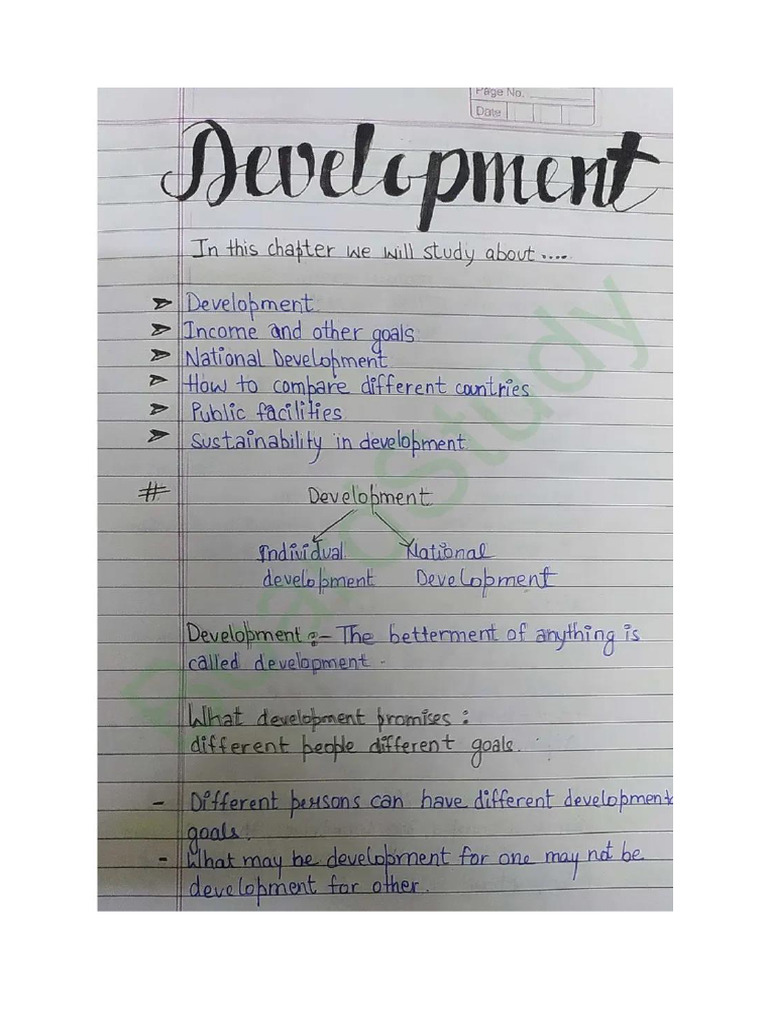 Page No.
Date
Development
In this chapter we will study about ....
➤ Development
➤ Income and other goals
➤ National Development
➤ How to compare different countries
➤ Public facilities
➤ Sustainability in development
# Development
Individual National
development Development
Development :- The betterment of anything is
called development -
What development promises :
different people different goals.
- Different persons can have different development
goals.
- What may be development for one may not be
development for other.